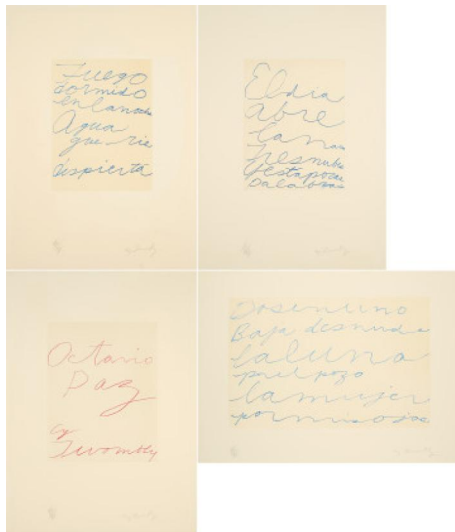 Fuego
dormido
en la noche
Agua
que rie
dispierta
El dia
abre
la mano
Tres nubes
y estas pocas
palabras
Octavio
Paz
Cy
Twombly
Dos en uno
Baja desnuda
la luna
por el pozo
la mujer
por mis ojos